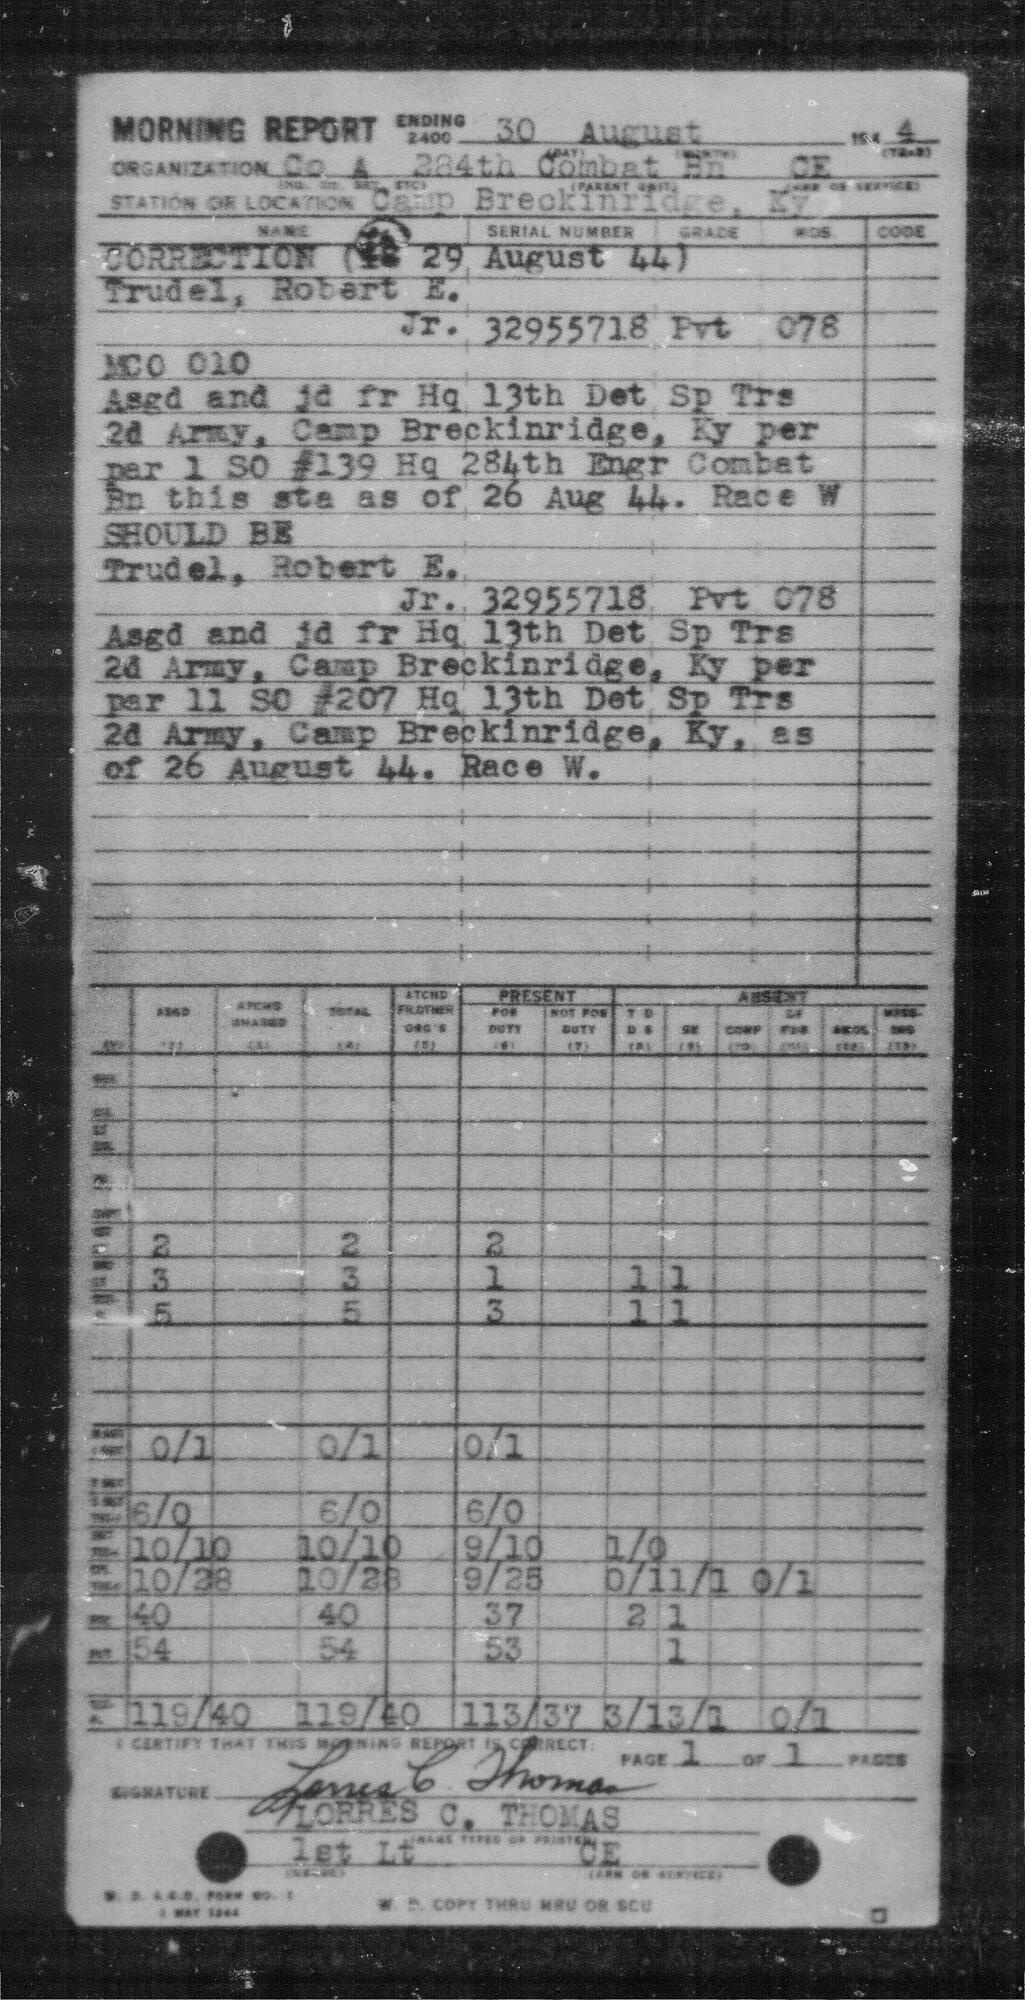 MORNING REPORT ENDING 2400 30 August 194 4
(DAY) (MONTH) (YEAR)
ORGANIZATION Co A 284th Combat Bn CE
(PARENT UNIT) (ARM OR SERVICE)
STATION OR LOCATION Camp Breckinridge, Ky
NAME SERIAL NUMBER GRADE MOS. CODE
CORRECTION ( 29 August 44)
Trudel, Robert E.
Jr. 32955718 Pvt 078
MCO 010
Asgd and jd fr Hq 13th Det Sp Trs
2d Army, Camp Breckinridge, Ky per
par 1 SO #139 Hq 284th Engr Combat
Bn this sta as of 26 Aug 44. Race W
SHOULD BE
Trudel, Robert E.
Jr. 32955718 Pvt 078
Asgd and jd fr Hq 13th Det Sp Trs
2d Army, Camp Breckinridge, Ky per
par 11 SO #207 Hq 13th Det Sp Trs
2d Army, Camp Breckinridge, Ky, as
of 26 August 44. Race W.
PRESENT ABSENT
ASGD TOTAL ATCHD FR OTHER ORG'S FOR DUTY NOT FOR DUTY T D D S SK CONF
(5) (6) (7) (8) (9)
2 2 2
3 3 1 1 1
5 5 3 1 1
0/1 0/1 0/1
6/0 6/0 6/0
10/10 10/10 9/10 1/0
10/28 10/28 9/25 0/11/1 0/1
40 40 37 2 1
PVT 54 54 53 1
119/40 119/40 113/37 3/13/1 0/1
I CERTIFY THAT THIS MORNING REPORT IS CORRECT: PAGE 1 OF 1 PAGES
SIGNATURE Lorres C. Thomas
LORRES C. THOMAS
(NAME TYPED OR PRINTED)
1st Lt CE
(GRADE) (ARM OR SERVICE)
W. D. A.G.O. FORM NO. 1
1 MAY 1944
W. D. COPY THRU MRU OR SCU